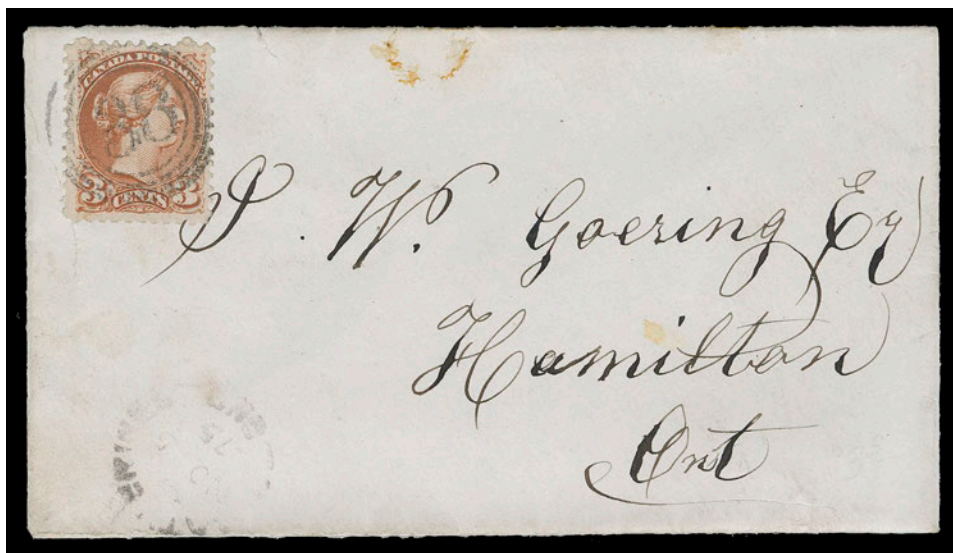 CANADA POSTAGE
3 CENTS 3
J. W. Goering Eq
Hamilton
Ont